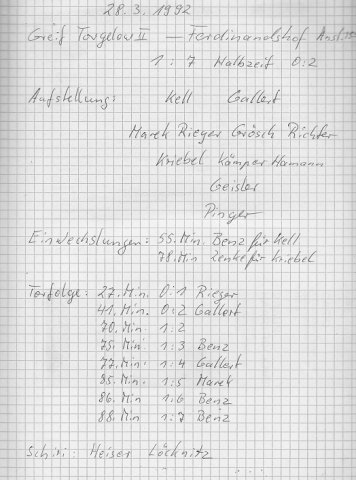 28. 3. 1992
Greif Torgelow II — Ferdinandshof Anst. 15
1 : 7 Halbzeit 0:2
Aufstellung: Kell Gallert
Marek Rieger Grösch Richter
Kriebel Kämper Hamann
Geisler
Pinger
Einwechslungen: 55. Min. Benz für Kell
78. Min Zenke für Kriebel
Torfolge: 27. Min. 0:1 Rieger
41. Min. 0:2 Gallert
70. Min 1:2
75. Min 1:3 Benz
77. Min. 1:4 Gallert
85. Min. 1:5 Marek
86. Min 1:6 Benz
88. Min 1:7 Benz
Schiri: Heiser Löcknitz